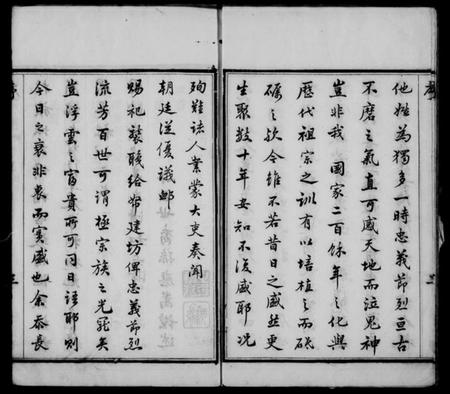 他姓為獨多一時忠義節烈亘古
不磨之氣直可感天地而泣鬼神
豈非我 國家二百餘年之化與
歷代祖宗之訓有以培植之而砥
礪之歟今雖不若昔日之盛然更
生聚數十年安知不復盛耶況
殉難諸人業蒙大吏奏聞
朝廷從優議卹
賜祀襲職給帑建坊俾忠義節烈
流芳百世可謂極宗族之光寵矣
豈浮雲之富貴所可同日語耶則
今日之衰非衰而實盛也余忝長